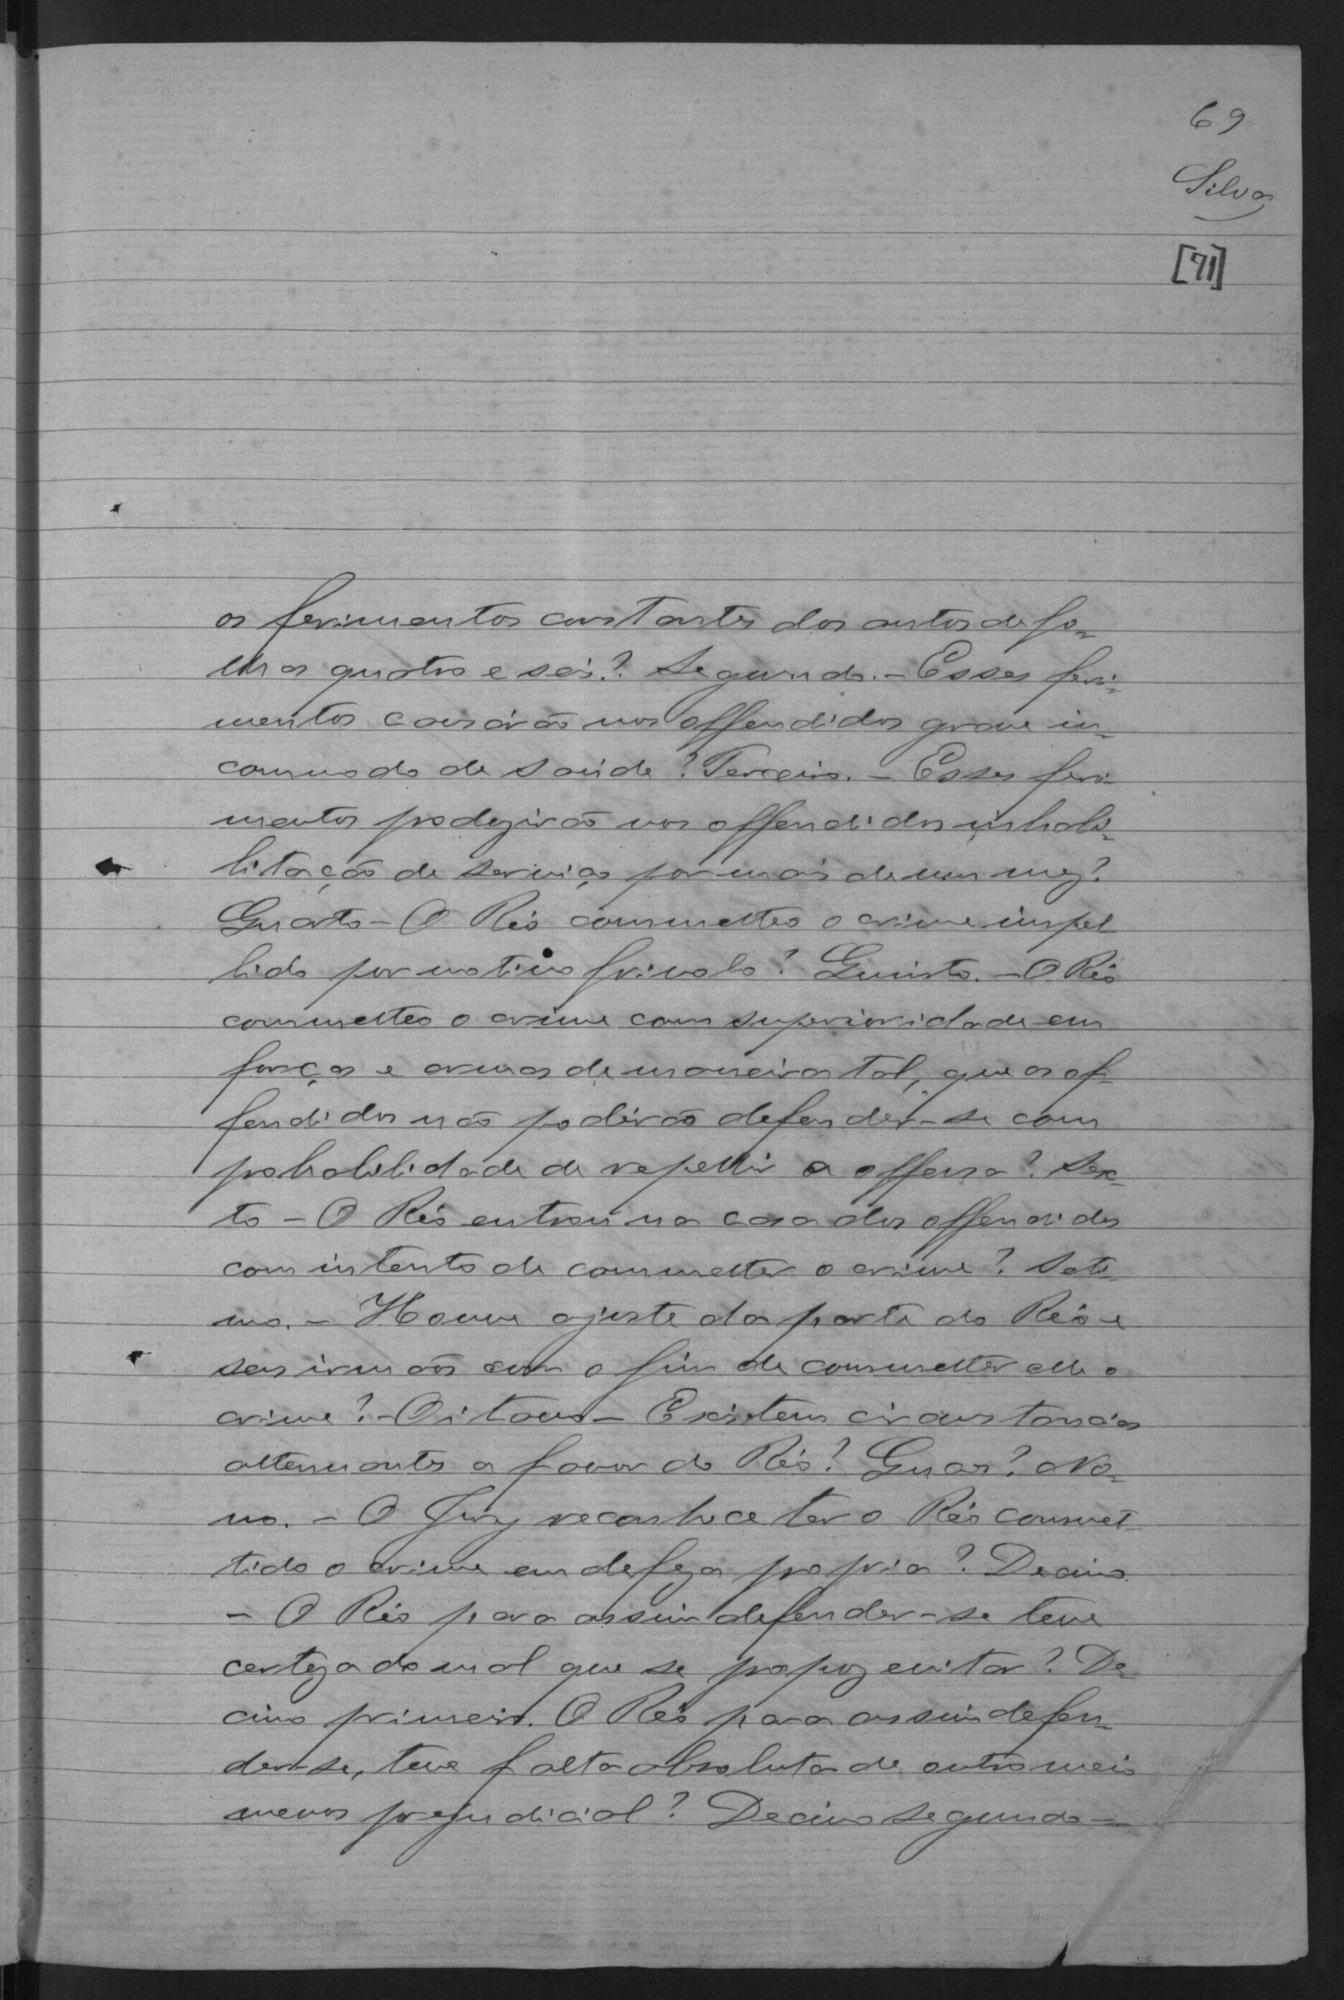 69
Silva
[71]
os ferimentos constantes dos autos de fo-
lhas quatro e seis? Segundo. - Esses feri-
mentos causárão nos offendidos grave in-
commodo de saúde? Terceiro. - Esses feri-
mentos produzirão nos offendidos inhabi-
litação de serviço por mais de um mez?
Quarto - O Réo commetteo o crime impel-
lido por motivo frivolo? Quinto. - O Réo
commetteo o crime com superioridade em
força e armas de maneira tal, que os of-
fendidos não podérão defender-se com
probabilidade de repellir a offensa? Sex-
to - O Réo entrou na casa dos offendidos
com intento de commetter o crime? Seti-
mo. - Houve ajuste da parte do Réo e
seus irmãos com o fim de commetter elle o
crime? - Oitavo - Existem circunstancias
attenuantes a favor do Réo? Quaes? No-
no. - O Jury reconhece ter o Réo commet-
tido o crime em defeza propria? Decimo
- O Réo para assim defender-se teve
certeza do mal que se propoz evitar? De-
cimo primeiro. O Réo para assim defen-
der-se, teve falta absoluta de outro meio
menos prejudicial? Decimo segundo -